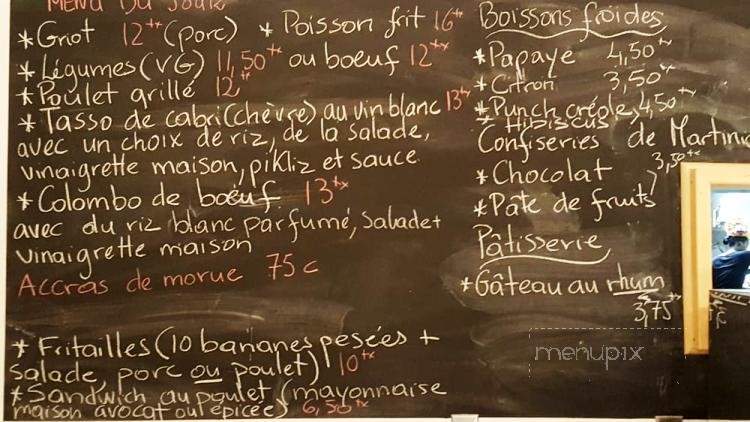 MENU DU JOUR
* Griot 12 +tx (porc) * Poisson frit 16 +tx
* Légumes (VG) 11,50 +tx ou boeuf 12 +tx
* Poulet grillé 12 +tx
* Tasso de cabri (chèvre) au vin blanc 13 +tx
avec un choix de riz, de la salade,
vinaigrette maison, pikliz et sauce.
* Colombo de boeuf 13 +tx
avec du riz blanc parfumé, salade +
vinaigrette maison
Accras de morue 75 c
* Fritailles (10 bananes pesées +
salade, porc ou poulet) 10 +tx
* Sandwich au poulet (mayonnaise
maison avocat ou épicée) 6,50 +tx
Boissons froides
* Papaye 4,50 +tx
* Citron 3,50 +tx
* Punch créole 4,50 +tx
+ Hibiscus
Confiseries de Martini
* Chocolat 3,50 +tx
* Pâte de fruits
Pâtisserie
* Gâteau au rhum
3,75 +tx
menupix